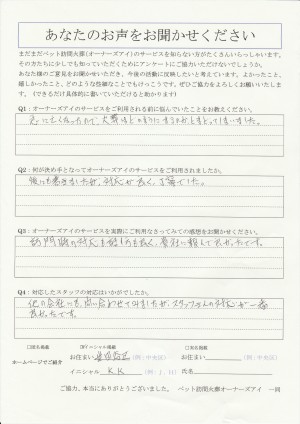 あなたのお声をお聞かせください
まだまだペット訪問火葬(オーナーズアイ)のサービスを知らない方がたくさんいらっしゃいます。
その方たちに少しでも知っていただくためにアンケートにご協力いただけないでしょうか。
あなた様のご意見をお聞かせいただき、今後の活動に反映したいと考えています。よかったこと、
嬉しかったこと、どのような些細なことでもけっこうです。ぜひご協力をよろしくお願いいたします。
(できるだけ具体的に書いていただけると助かります)
Q1:オーナーズアイのサービスをご利用される前に悩んでいたことをお教えください。
急に亡くなったので、火葬
Q2:何が決め手となってオーナーズアイのサービスをご利用されましたか。
対応が良く、丁寧でした。
Q3:オーナーズアイのサービスを実際にご利用なさってみての感想をお聞かせください。
訪問時の対応も
Q4:対応したスタッフの対応はいかがでしたか。
他の会社にも、問い合わせてみましたが、スタッフさんの対応が一番
良かったです。
□匿名掲載 □イニシャル掲載 □実名掲載
ホームページでご紹介
お住まい (例:中央区) お住まい (例:中央区)
イニシャル K.K (例:J.H) 氏名
ご協力、本当にありがとうございました。 ペット訪問火葬オーナーズアイ 一同